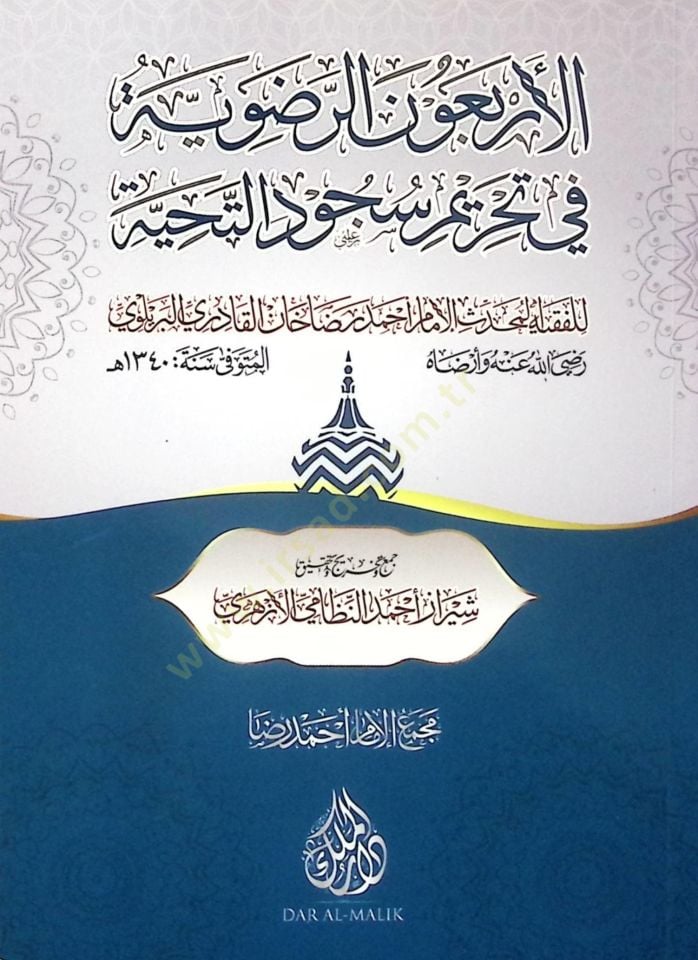 الأربعون الرضوية
في تحريم سجود التحية
للفقيه المحدث الإمام أحمد رضا خان القادري البريلوي
رضي الله عنه وأرضاه المتوفى سنة: ١٣٤٠هـ
جمع وتخريج وتحقيق
شيراز أحمد النظامي الأزهري
مجمع الإمام أحمد رضا
دار الملك
DAR AL-MALIK